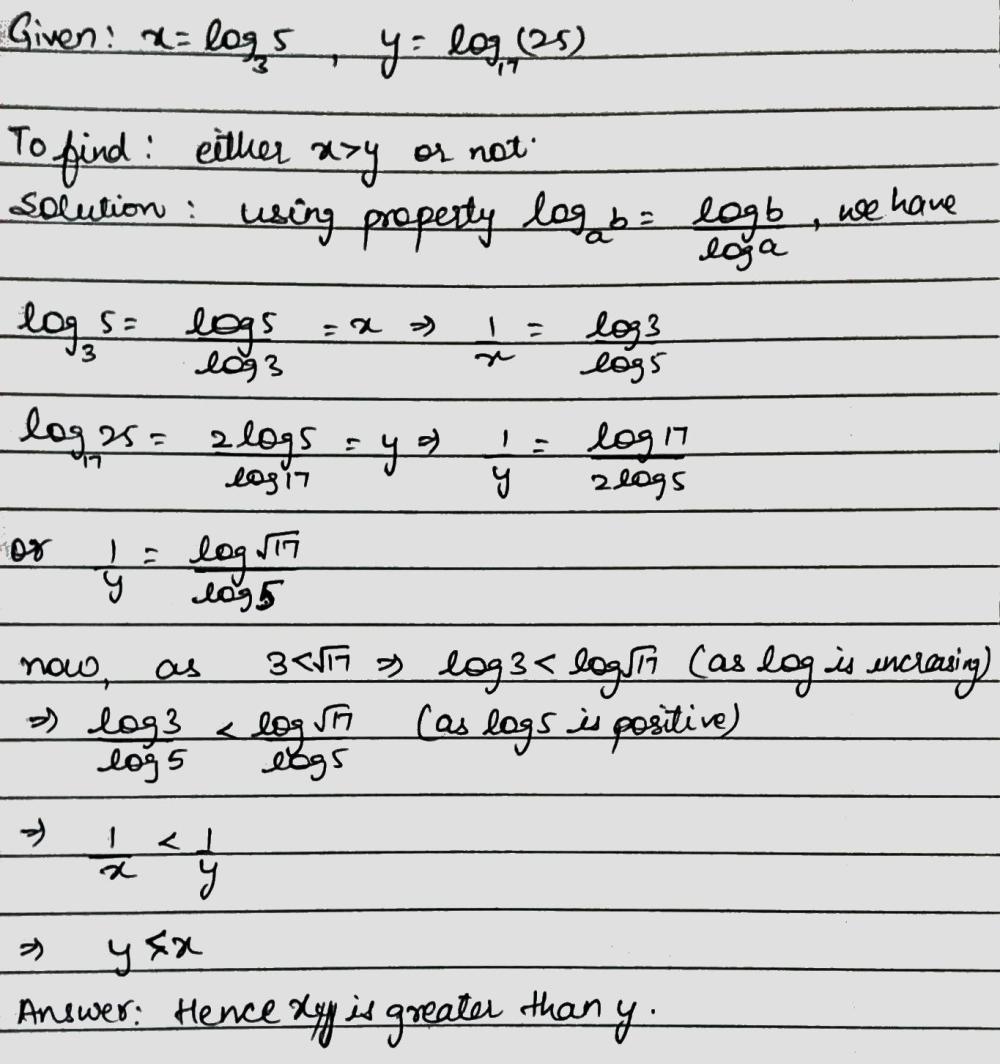 Given: x = log₃ 5 , y = log₁₇ (25)
To find : either x>y or not.
Solution : using property logₐ b = log b / log a , we have
log₃ 5 = log 5 / log 3 = x ⇒ 1/x = log 3 / log 5
log₁₇ 25 = 2 log 5 / log 17 = y ⇒ 1/y = log 17 / 2 log 5
or 1/y = log √17 / log 5
now, as 3<√17 ⇒ log 3 < log √17 (as log is increasing)
⇒ log 3 / log 5 < log √17 / log 5 (as log 5 is positive)
⇒ 1/x < 1/y
⇒ y < x
Answer: Hence x is greater than y.